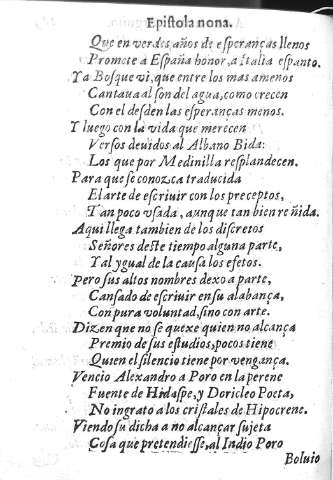 Epistola nona.
Que en verdes años de esperanças llenos
Promete a España honor, a Italia espanto.
Ya Bosque vi, que entre los mas amenos
Cantaua al son del agua, como crecen
Con el desden las esperanças menos.
Y luego con la vida que merecen
Versos deuidos al Albano Bida:
Los que por Medinilla resplandecen.
Para que se conozca traducida
El arte de escriuir con los preceptos,
Tan poco vsada, aunque tan bien reñida.
Aqui llega tambien de los discretos
Señores deste tiempo alguna parte,
Y al ygual de la causa los efetos.
Pero sus altos nombres dexo a parte,
Cansado de escriuir en su alabança,
Con pura voluntad, sino con arte.
Dizen que no se quexe quien no alcança
Premio de sus estudios, pocos tiene
Quien el silencio tiene por vengança.
Vencio Alexandro a Poro en la perene
Fuente de Hidaspe, y Doricleo Poeta,
No ingrato a los cristales de Hipocrene.
Viendo su dicha a no alcançar sujeta
Cosa que pretendiesse, al Indio Poro
Boluio